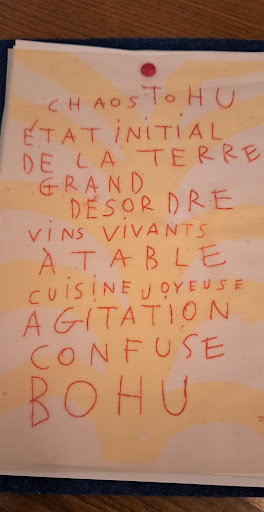 CHAOS TOHU
ÉTAT INITIAL
DE LA TERRE
GRAND
DÉSORDRE
VINS VIVANTS
À TABLE
CUISINE JOYEUSE
AGITATION
CONFUSE
BOHU